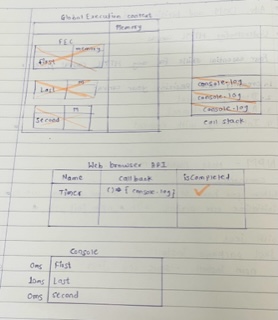 Global Execution context
Memory
FEC
memory
First
console.log
Last
m
console.log
console.log
Second
m
call stack
Web browser API
Name
callback
isCompleted
Timer
() => { console.log }
Console
0ms
First
10ms
Last
Second